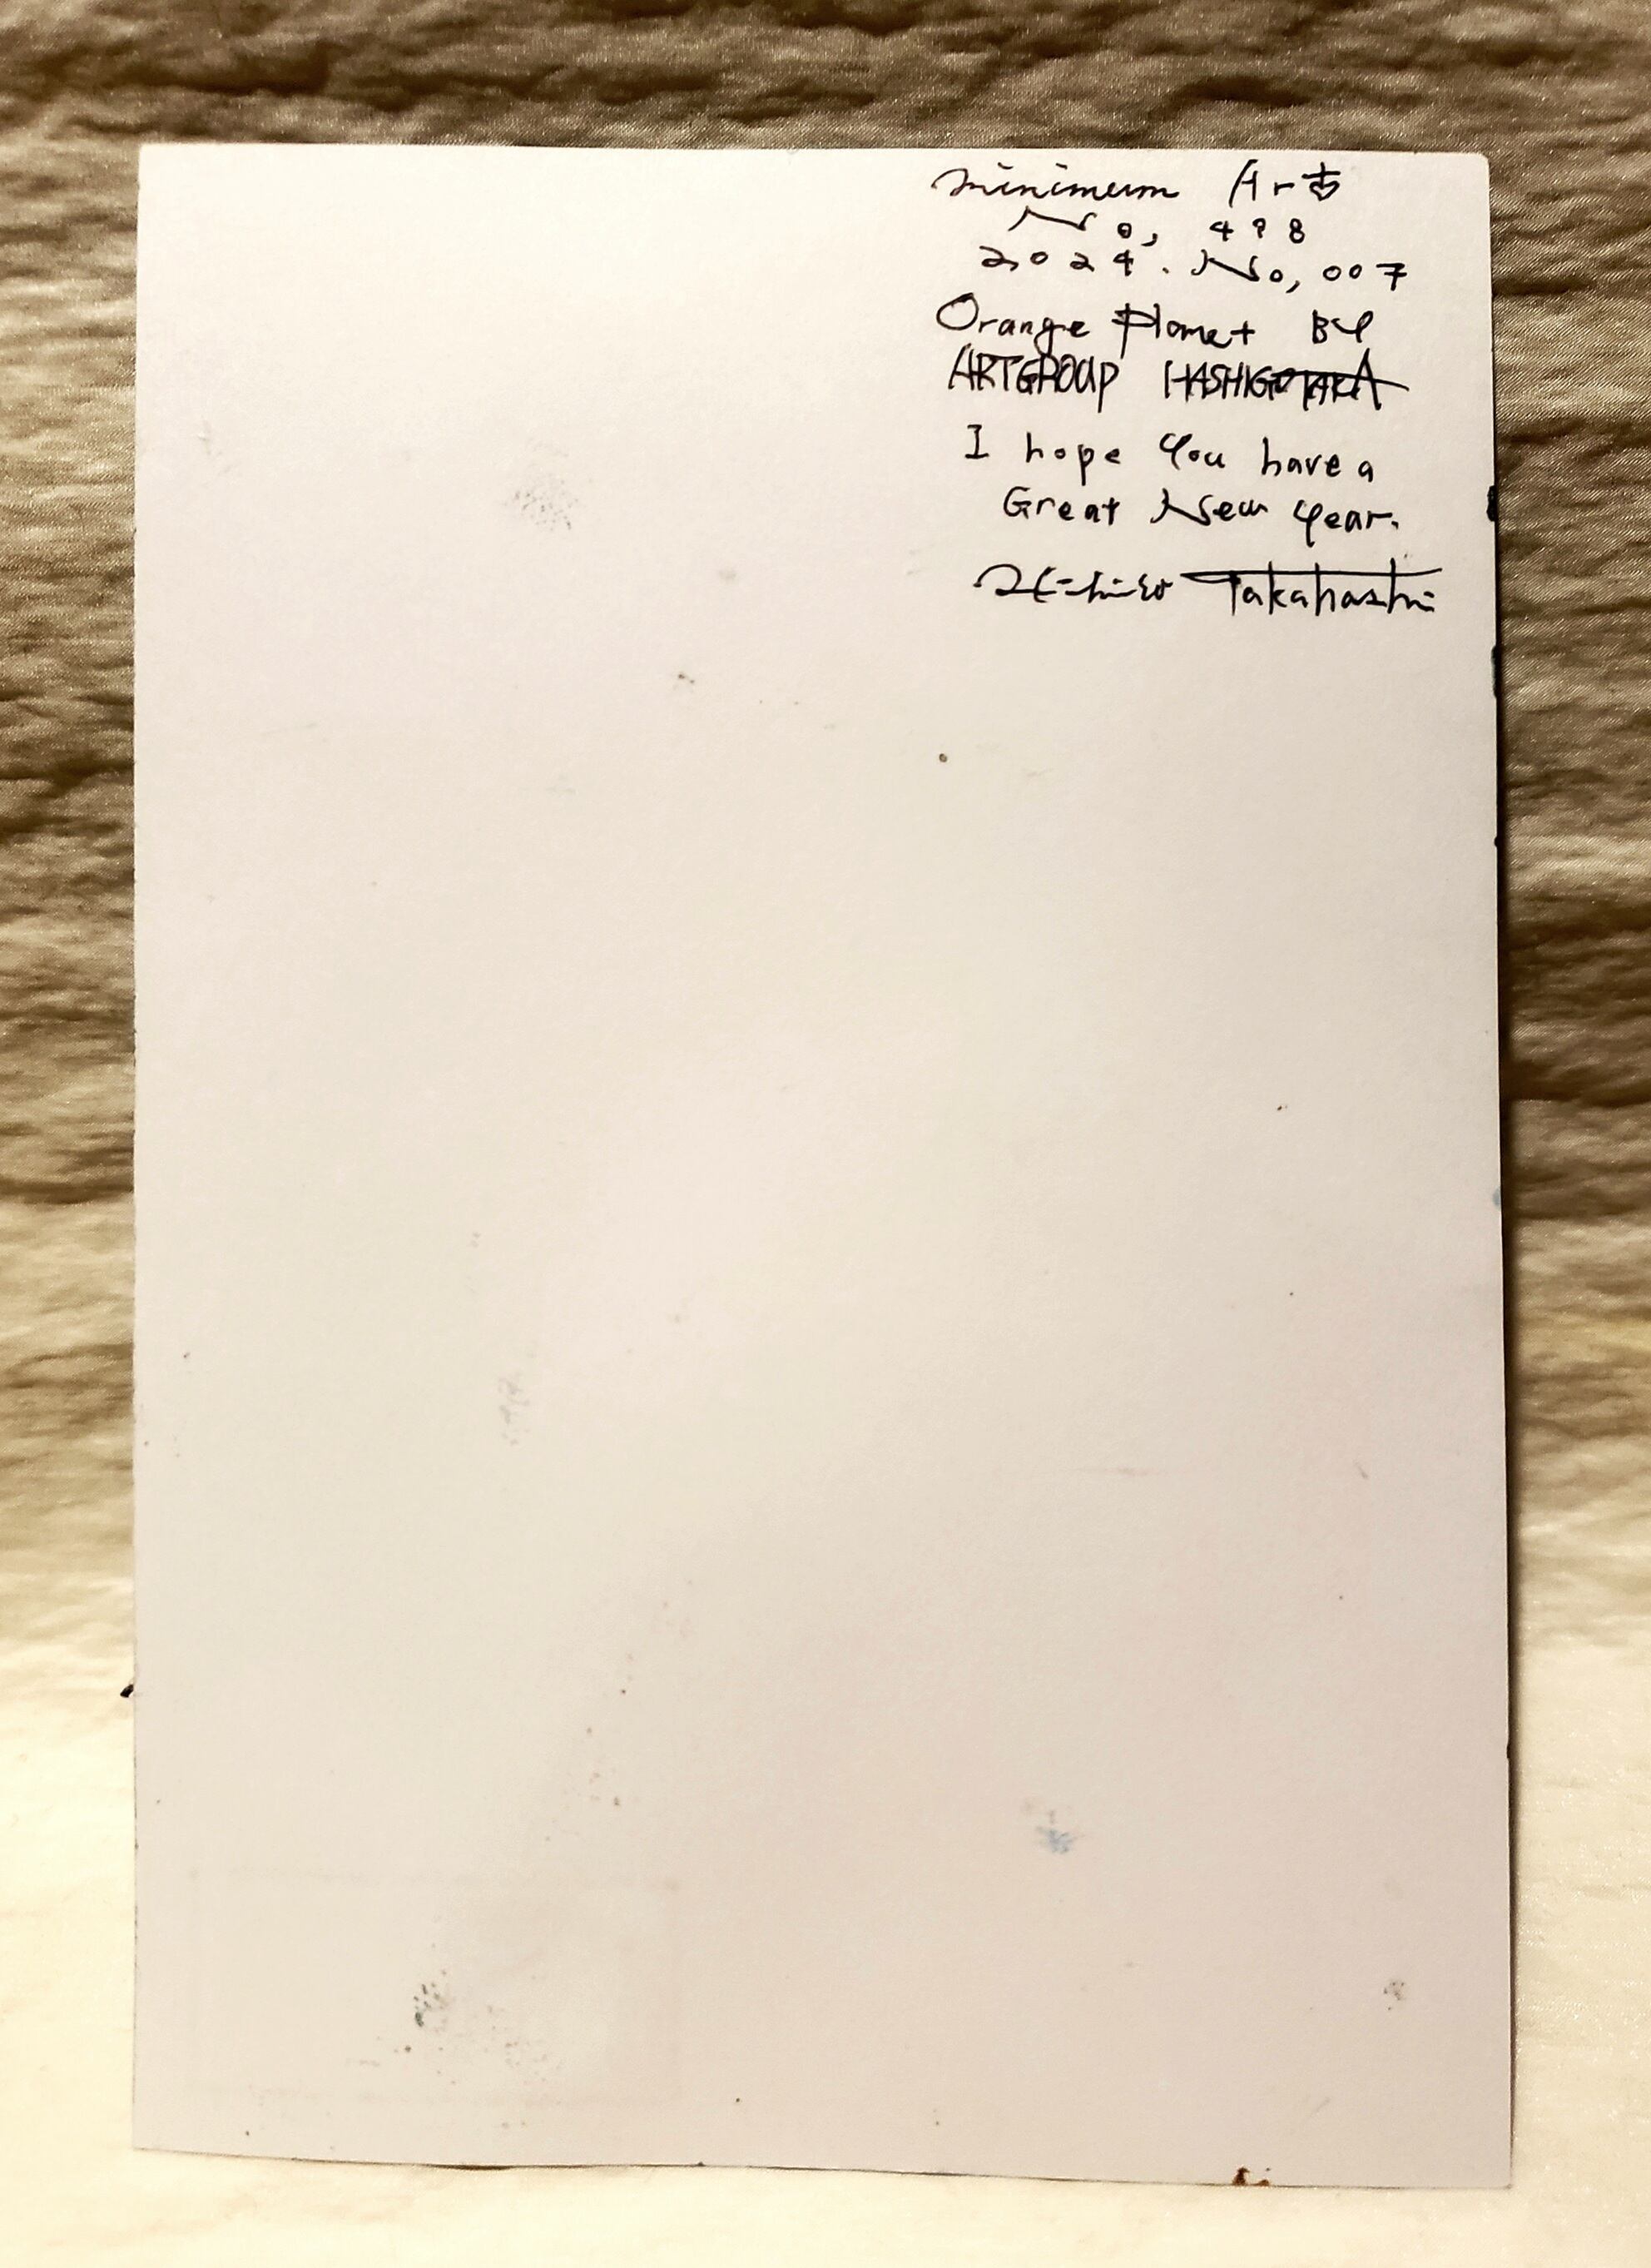 minimum Art
No, 498
2024. No, 007
Orange Planet BY
ARTGROUP HASHIGOTAKA
I hope You have a
Great New Year.
Takahashi